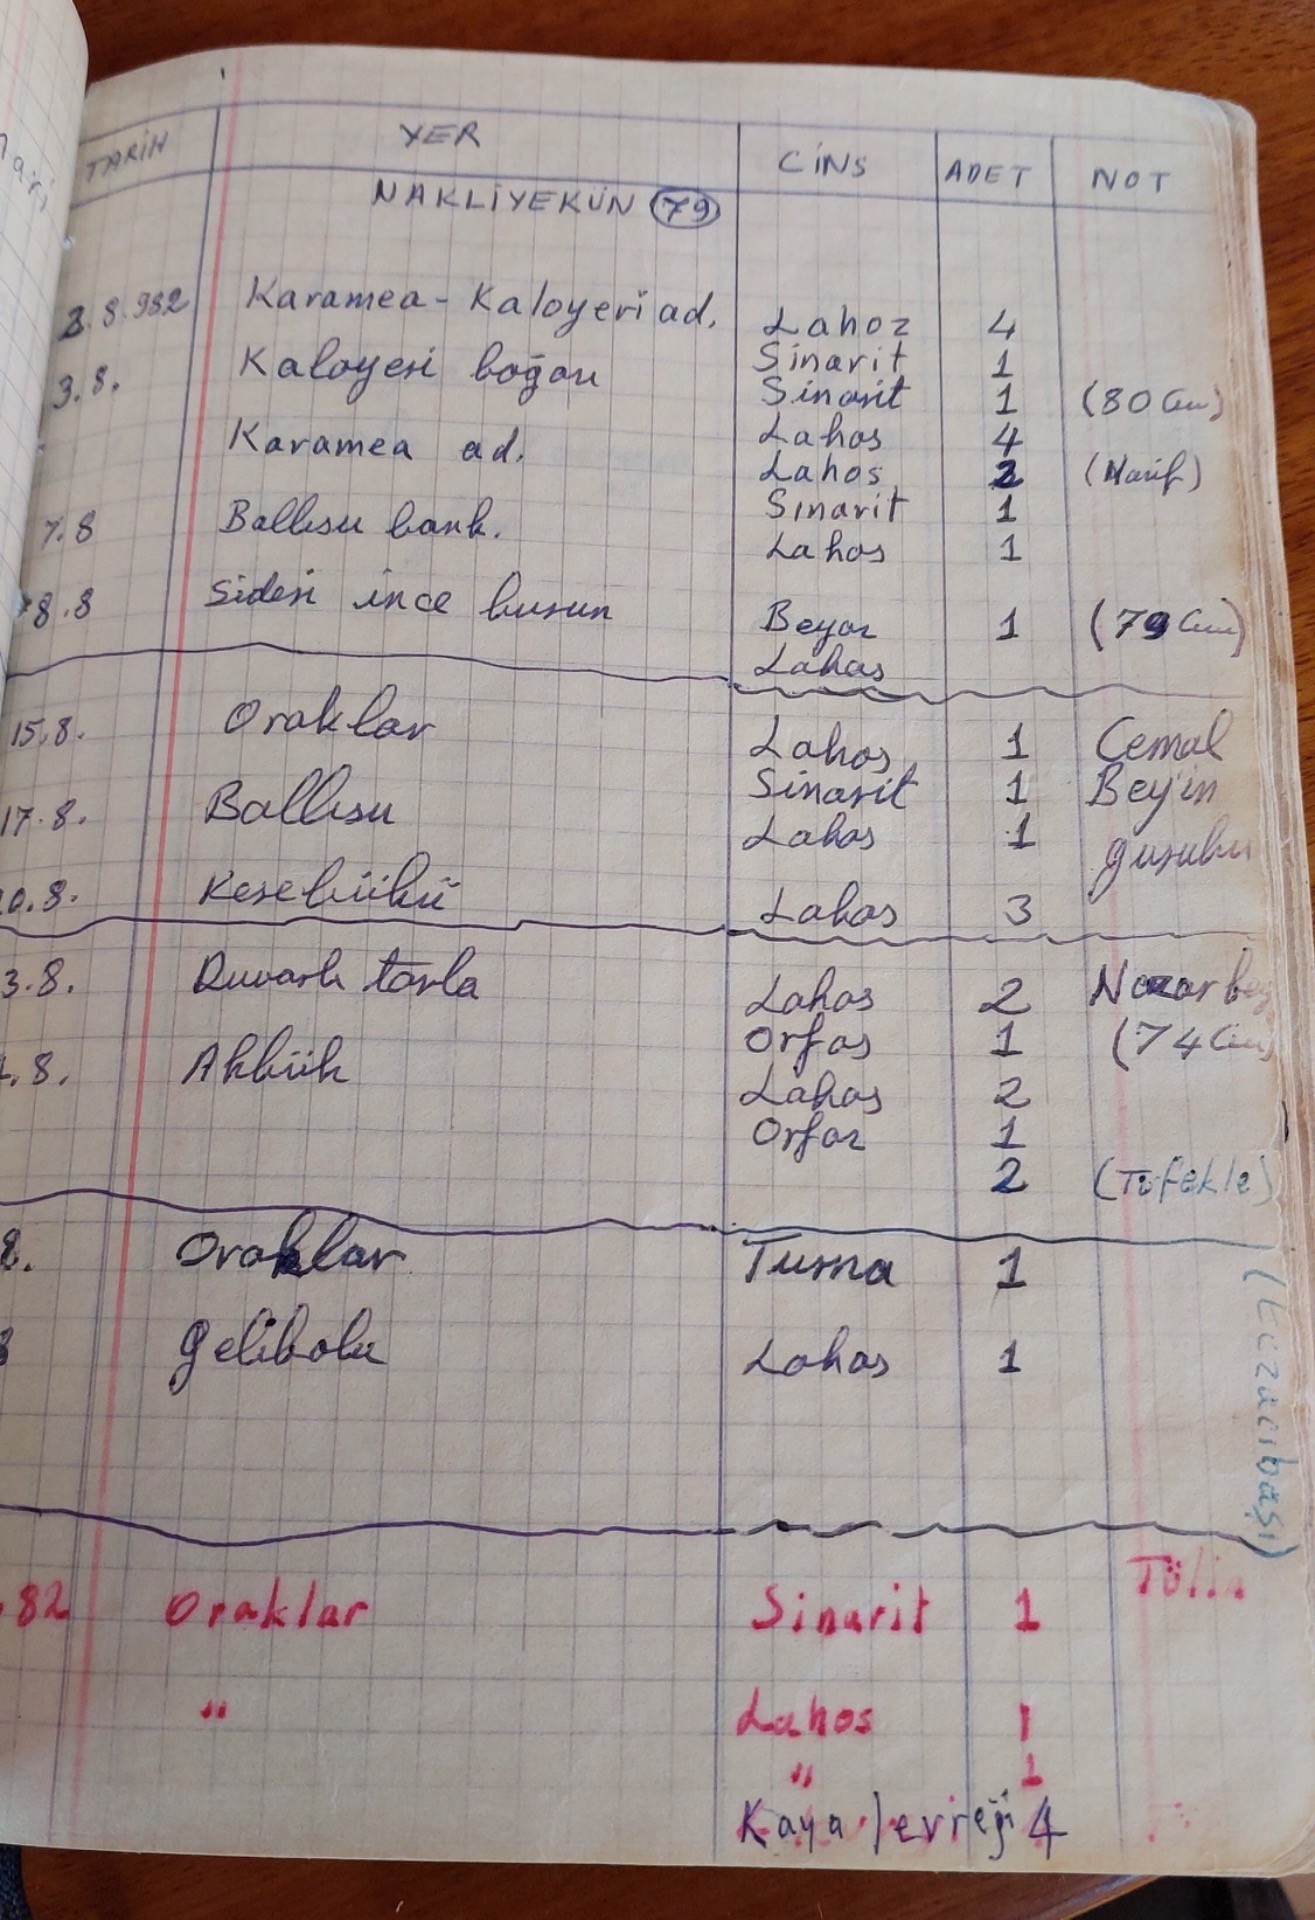 TARİH YER CİNS ADET NOT
NAKLİYEKÜN 79
3.8.982 Karamea - Kaloyeri ad. Lahoz 4
Sinarit 1
3.8. Kaloyeri boğazı Sinarit 1 (80 Cm)
Lahos 4
Karamea ad. Lahos 2 (Narif)
Sinarit 1
7.8 Ballısu bank. Lahos 1
8.8 Sideri ince burun Beyaz 1 (79 Cm)
Lahos
15.8. Oraklar Lahos 1 Cemal
Sinarit 1 Bey'in
17.8. Ballısu Lahos 1 gurubu
0.8. Kesebükü Lahos 3
3.8. Duvarlı tarla Lahos 2
Orfos 1 (74 Cm)
.8. Akbük Lahos 2
Orfoz 1
2 (Tüfekle)
8. Oraklar Turna 1
8 Gelibolu Lahos 1
(Eczacıbaşı)
.82 Oraklar Sinarit 1
" Lahos 1
" 1
Kaya levreği 4